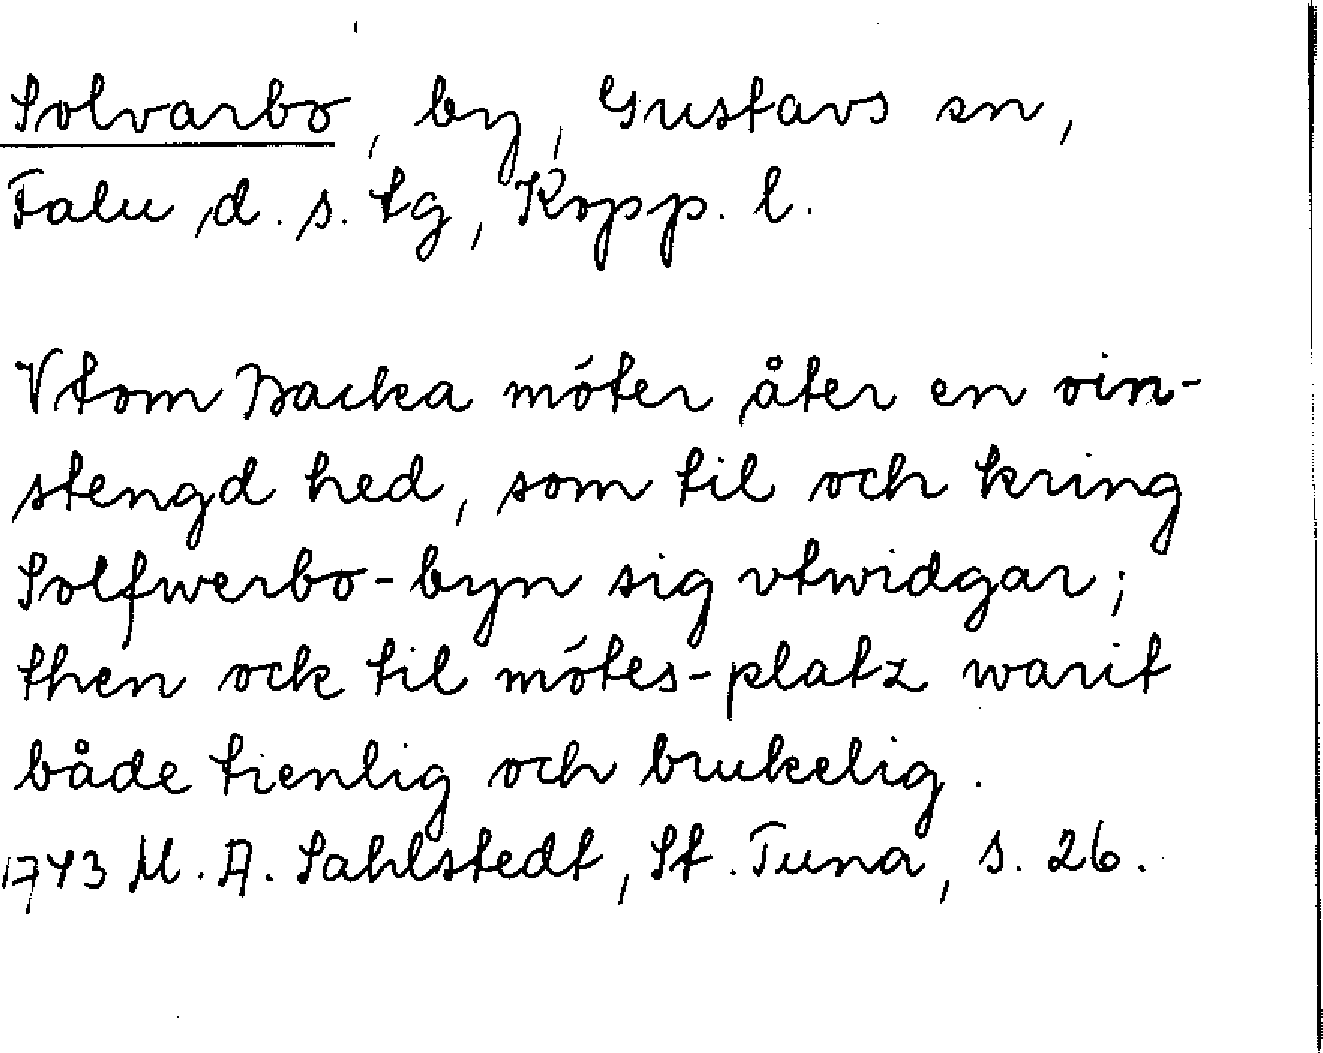 Solvarbo, by, Gustavs sn,
Falu d. s. tg, Kopp. l.
Vtom Backa móter åter en oin-
stengd hed, som til och kring
Solfwerbo-byn sig vtwidgar;
then ock til mótes-platz warit
både tienlig och brukelig.
1743 M. A. Sahlstedt, St. Tuna, s. 26.